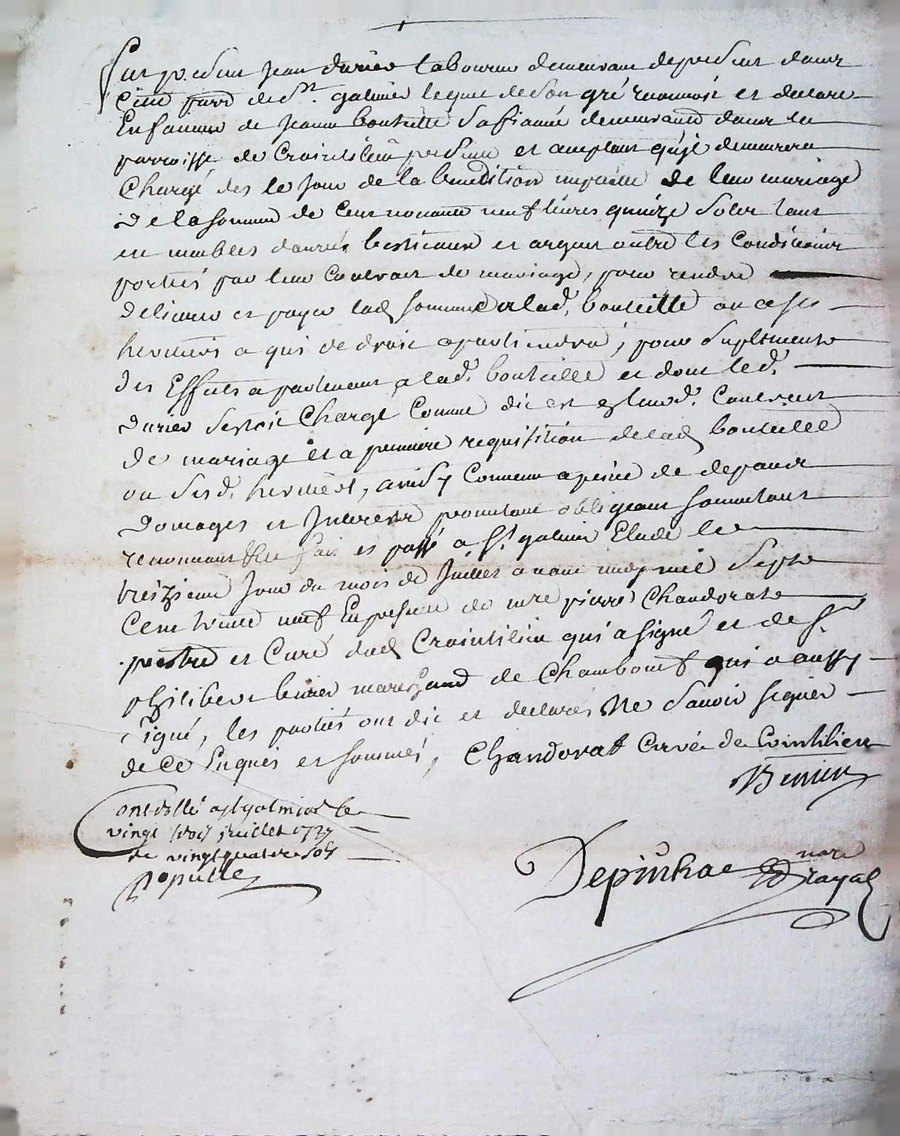 fut p.esant Jean durier laboureur demeurant de present dans
cette parr. de St. galmier lequel de son gré reconnoit et declare
En faveur de Jeanne bouteille sa fiancée demeurante dans la
parroisse de Craintilieu presente et acceptant qu'il demeurera
Chargé des le Jour de la benediction de leur mariage
De la somme de Cent nonante neuf livres quinze Sols tant
en meubles danrés bestieaux et argent outre les Conditions
portées par leur Contrat de mariage, pour rendre
deliurer et payer lad. somme a lad. bouteille ou a ses
heritiers a qui de droit apartiendra, pour Suplement
des Effets apartenant a lad. bouteille et dont led.
durier sestoit Chargé Comme dit est aud. Contrat
de mariage et a premiere requisition de lad. bouteille
ou sesd. heritiers, ainsy Convenu a peine de depans
Domages et Interests promettant obligeant soumettant
renonceant &c fait et passé a St. galmier Etude le
treizieme Jour du mois de Juillet avant midy mil Sept
Cent trente neuf En presence de mre pierre Chandorat
prestre et Curé dud. Craintilieu qui a signé et de Sr.
philibert marchand de Chambœuf qui a aussy
signé, les parties ont dit et declarés Ne Savoir signer
de Ce Enquis et sommés, Chandorat Curé de Cointilieu
Controllé a St galmier le
vingt juillet 1739
Rx vingt quatre sols
nore
royal